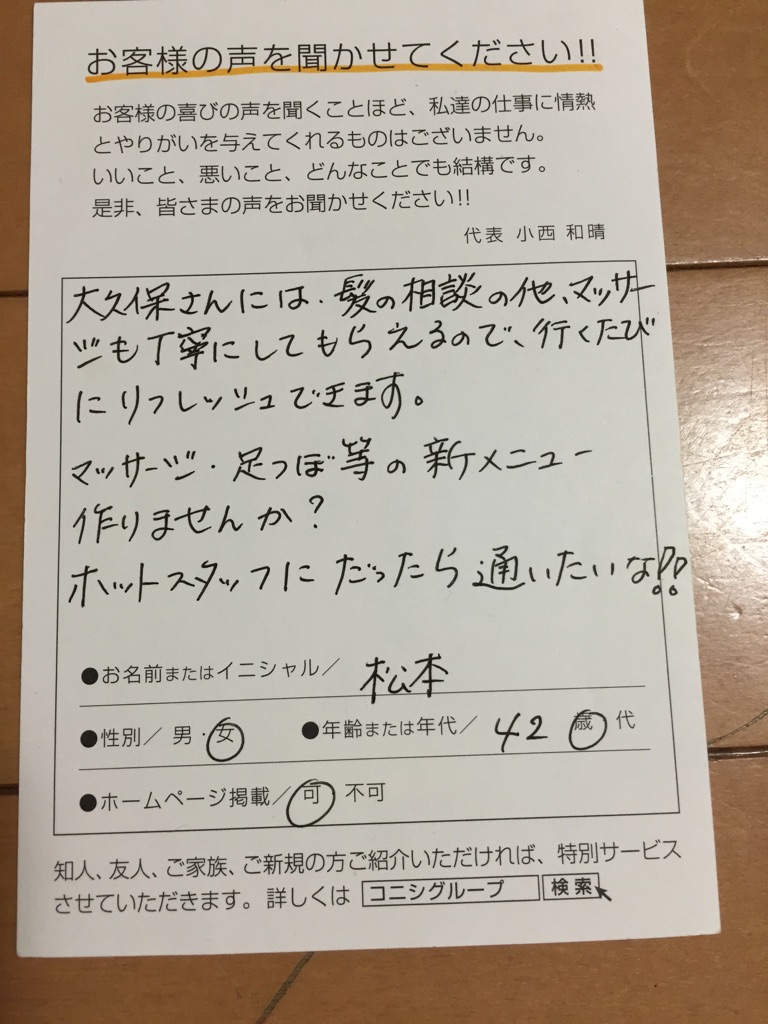 お客様の声を聞かせてください!!
お客様の喜びの声を聞くことほど、私達の仕事に情熱
とやりがいを与えてくれるものはございません。
いいこと、悪いこと、どんなことでも結構です。
是非、皆さまの声をお聞かせください!!
代表 小西 和晴
大久保さんには、髪の相談の他、マッサー
ジも丁寧にしてもらえるので、行くたび
にリフレッシュできます。
マッサージ・足つぼ等の新メニュー
作りませんか？
ホットスタッフにだったら通いたいな!?!?
●お名前またはイニシャル／ 松本
●性別／ 男・女 ●年齢または年代／ 42 歳 代
●ホームページ掲載／ 可 不可
知人、友人、ご家族、ご新規の方ご紹介いただければ、特別サービス
させていただきます。詳しくは コニシグループ 検索